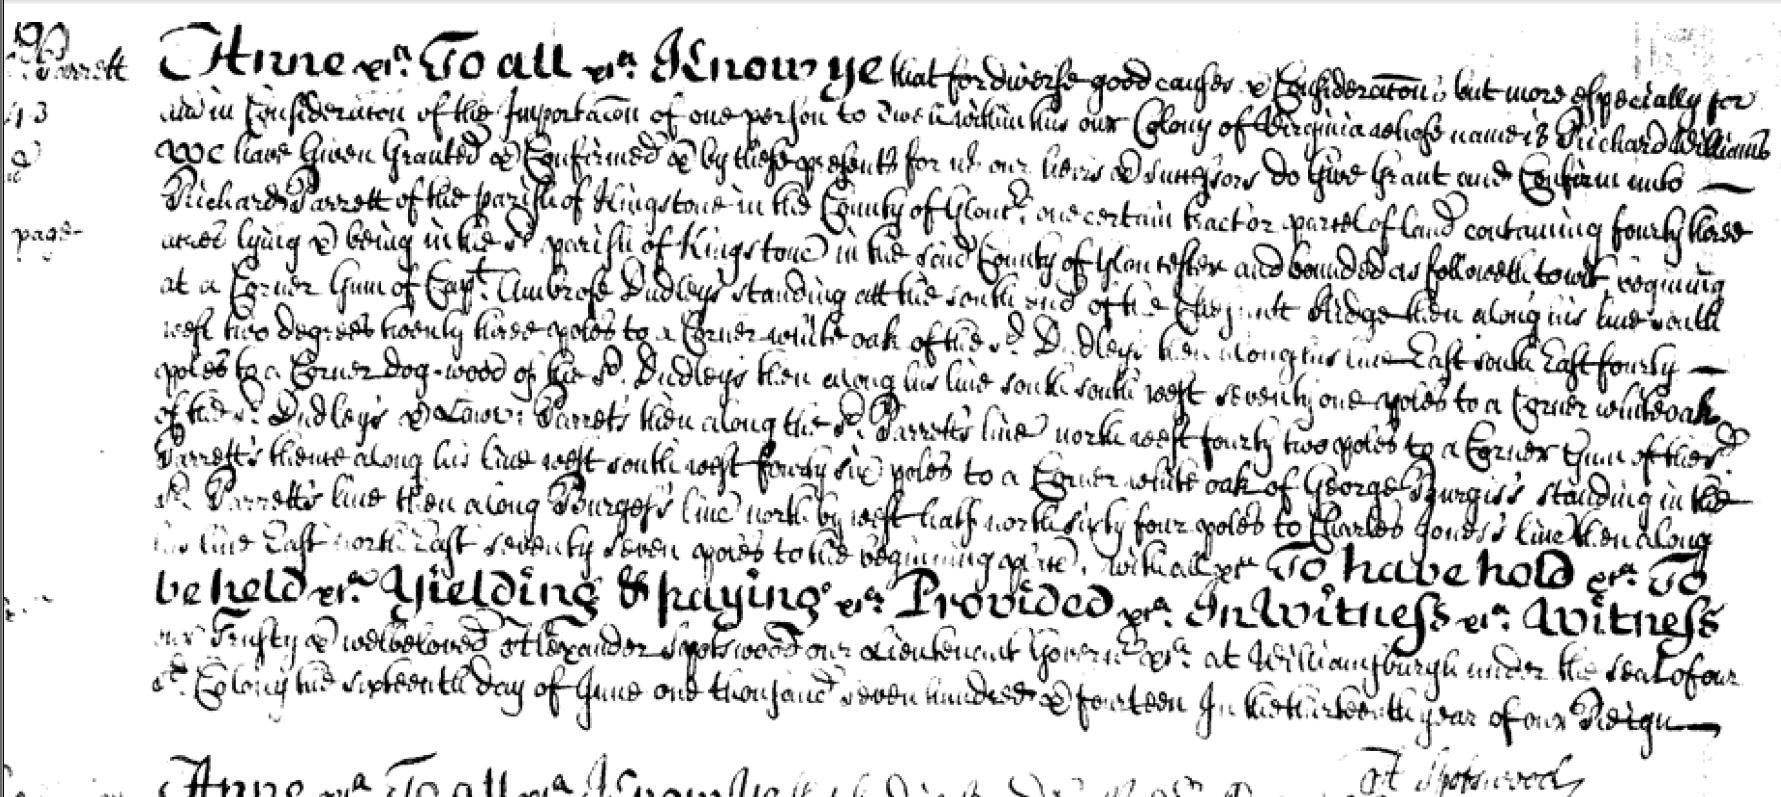 Parrett
43
page
Anne &ca. To all &ca. Know ye that for diverse good causes & Considerations, but more especially for
and in Consideration of the Importation of one person to dwell within this our Colony of Virginia whose name is Richard Williams
We have Given Granted & Confirmed & by these presents for us our heirs & Successors do Give Grant and Confirm unto
Richard Parrett of the parish of Kingstone in the County of Glouc: one certain tract or parcel of land containing fourty three
acres lying & being in the sd. parish of Kingstone in the said County of Gloucester and bounded as followeth to wit begining
at a Corner Gum of Capt. Ambrose Dudleys standing att the south end of the Chesnut Ridge then along his line south
west two degrees twenty three poles to a Corner white oak of the sd. Dudleys then along his line East south East fourty
poles to a Corner Dog-wood of the sd. Dudleys then along his line south south west seventy one poles to a Corner white oak
of the sd. Dudley's & Lawr: Parrets then along the sd. Parretts line north west fourty two poles to a Corner Gum of the sd.
Parrett's thence along his line west south west fourty six poles to a Corner white oak of George Burgis's standing in the
sd. Parrett's line then along Burges's line north by west half north sixty four poles to Charles Jones's line then along
his line East north East seventy seven poles to the beginning place, with all &ca. To have hold &ca. To
be held &ca. Yielding & paying &ca. Provided &ca. In Witness &ca. Witness
our Trusty & welbeloved Alexander Spotswood our Lieutenant Governr. &ca. at Williamsburgh under the seal of our
sd. Colony the sixteenth day of June one thousand seven hundred & fourteen In the thirteenth year of our Reign
A Spotswood
Anne &ca. To all &ca. Know ye